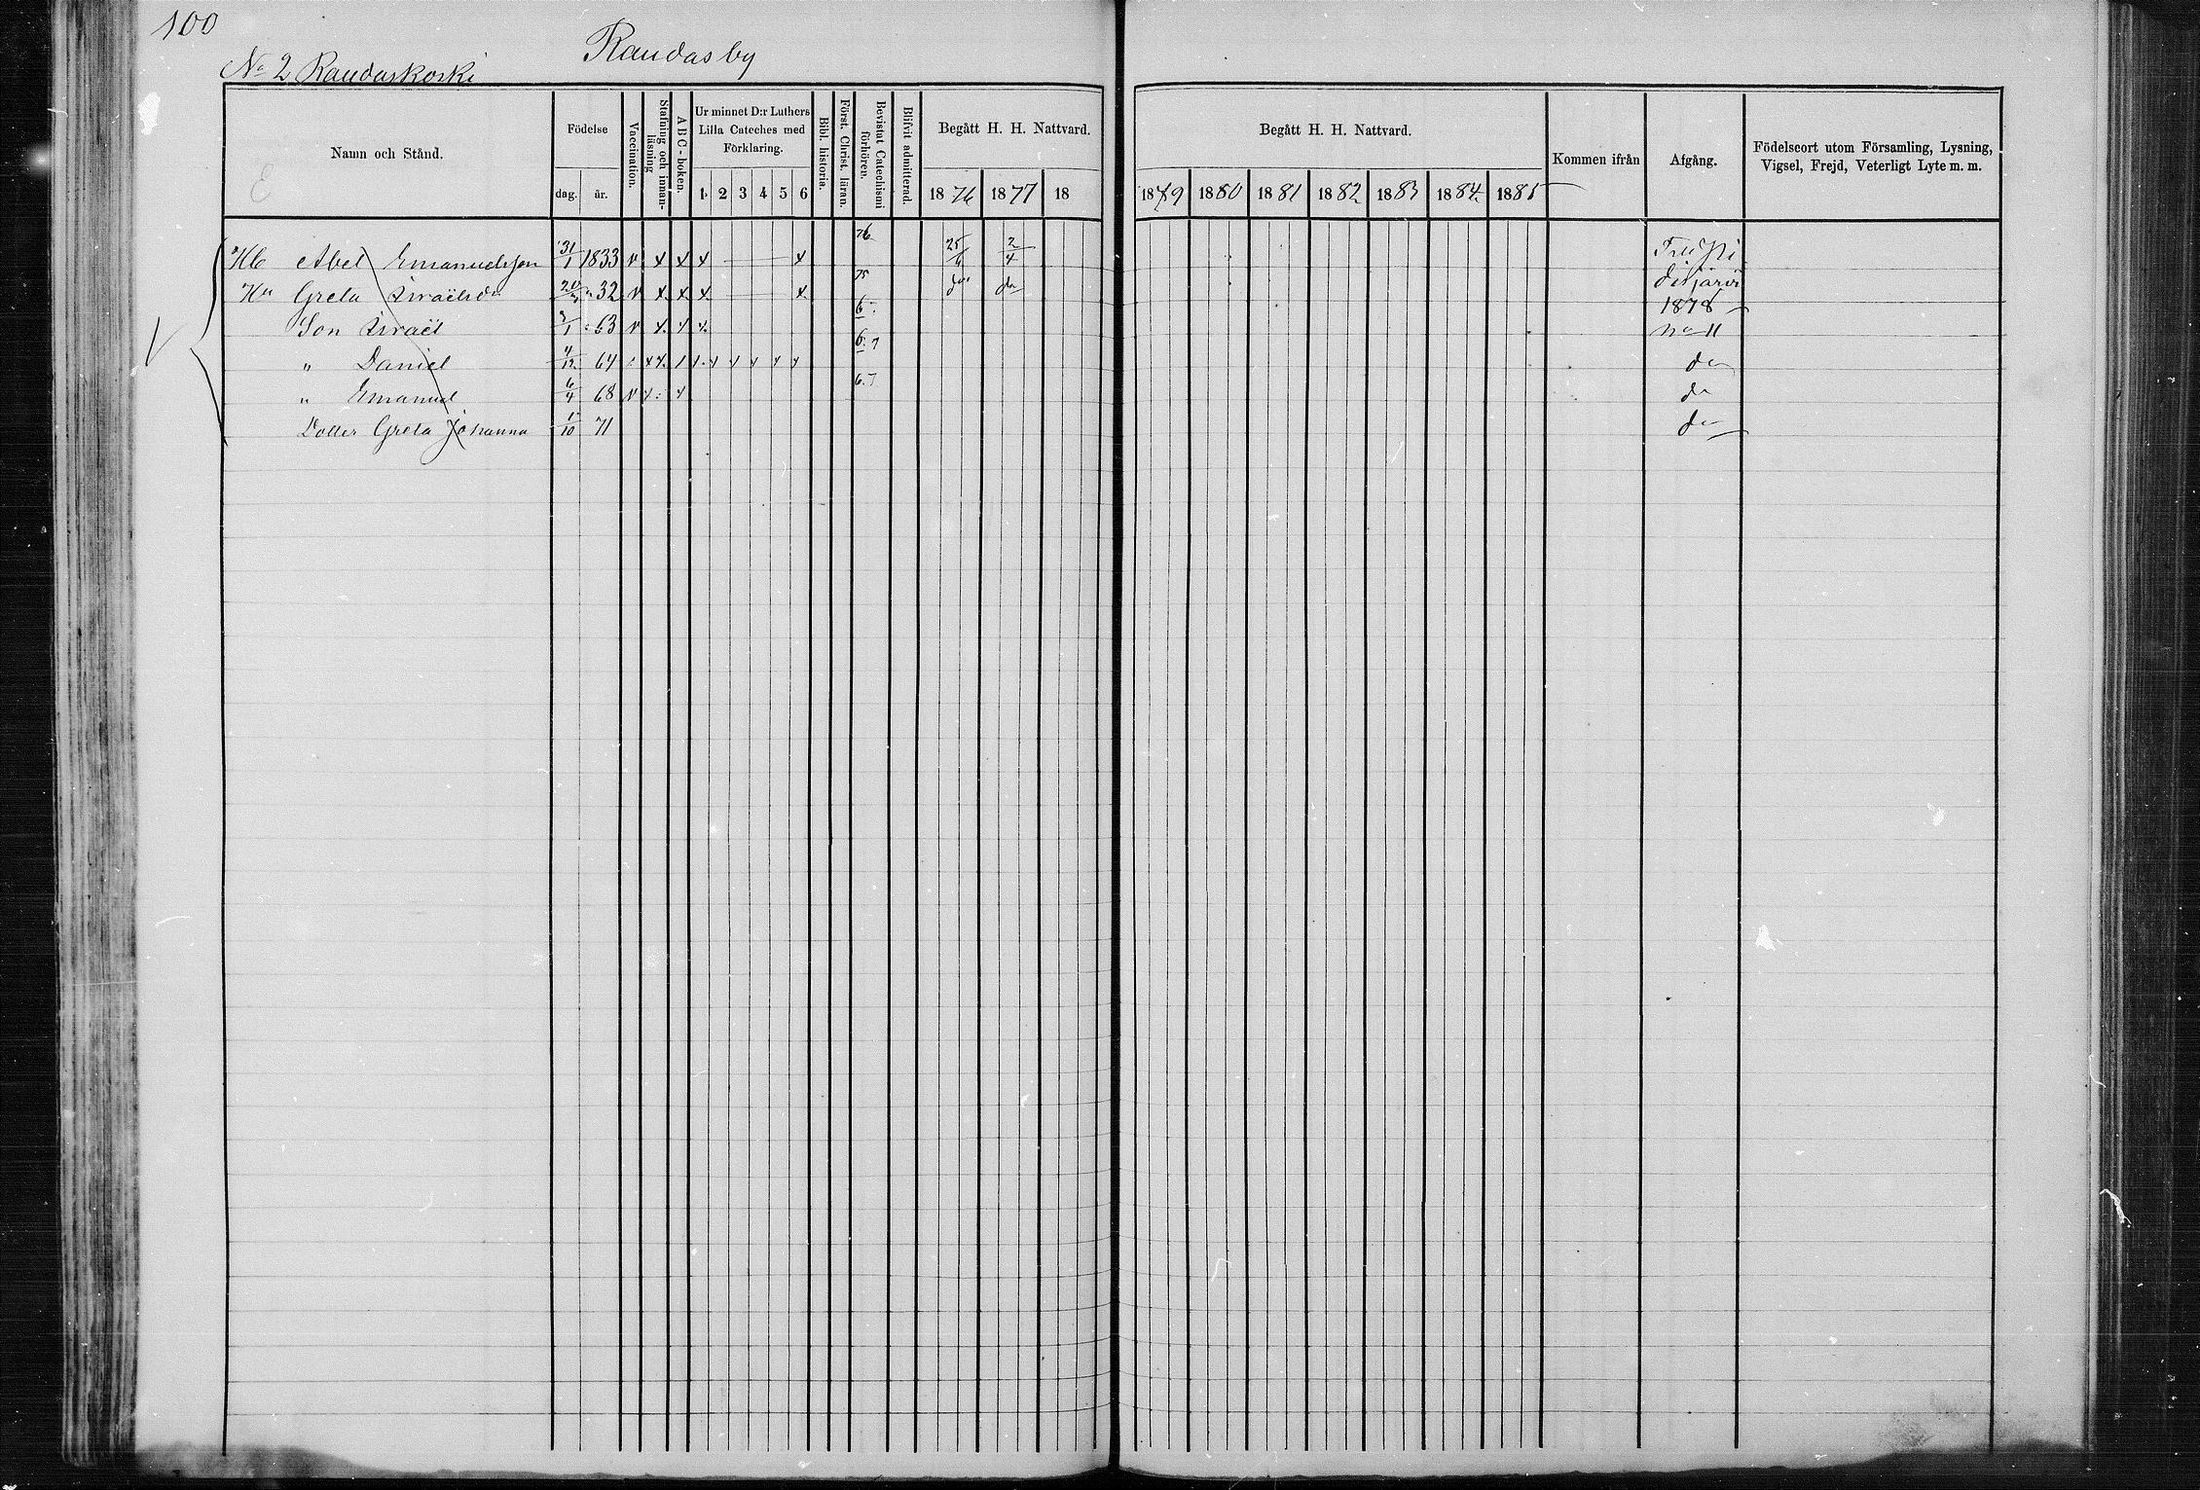 100
Raudasby
No 2 Raudaskoski
Namn och Stånd.
Födelse
dag. år.
Vaccination.
Stafning och innanläsning
A B C-boken.
Ur minnet D:r Luthers Lilla Cateches med Förklaring.
1 2 3 4 5 6
Bibl. historia.
Först. Christ. läran.
Bevistat Catechismi förhören.
Blifvit admitterad.
Begått H. H. Nattvard.
1876 1877 18
Begått H. H. Nattvard.
1879 1880 1881 1882 1883 1884 1885
Kommen ifrån
Afgång.
Födelseort utom Församling, Lysning, Vigsel, Frejd, Veterligt Lyte m. m.
Abel Emanuelsson 31/1 1833 v x x x x 76 2/4
Hu Greta Israelsdr 32 v x x x x 75 do do
Son Israël 63 v x x x 6
" Daniel 4/12 64 6. 7 do
" Emanuel 6/4 68 v 6. 7 do
Dotter Greta Johanna 71 do
disjärvi
1878
no 11